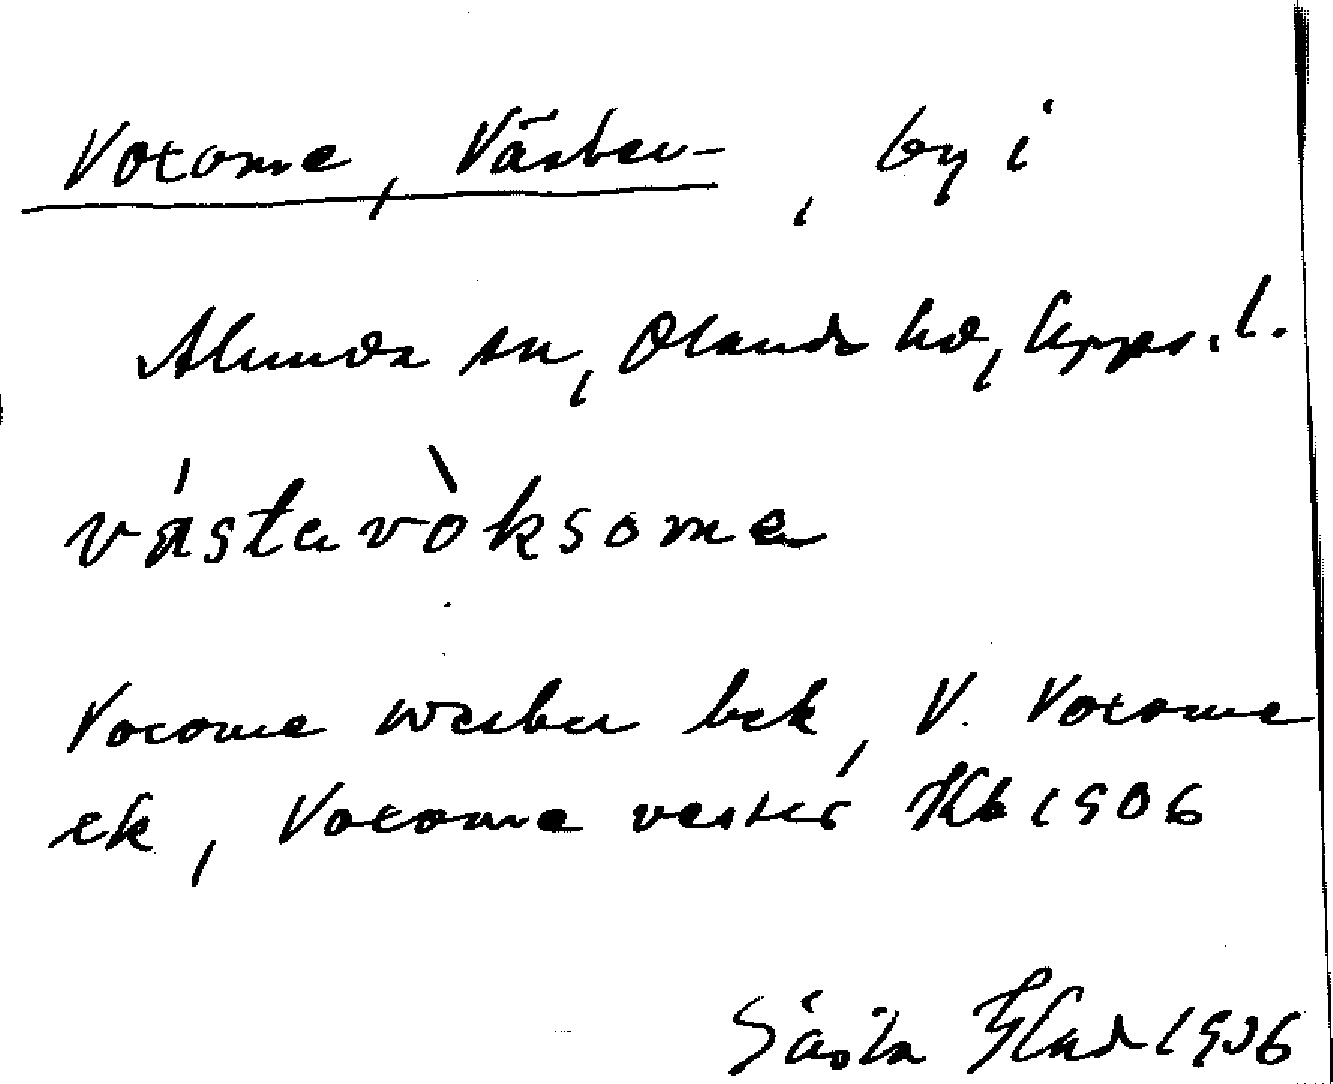 Voxome, Väster-, by i
Alunda sn, Olands hd, Upps. l.
västavòksome
Voxome wester bek, V. Voxome
ek, Voxome vester Hkb 1906
Gösta 1906